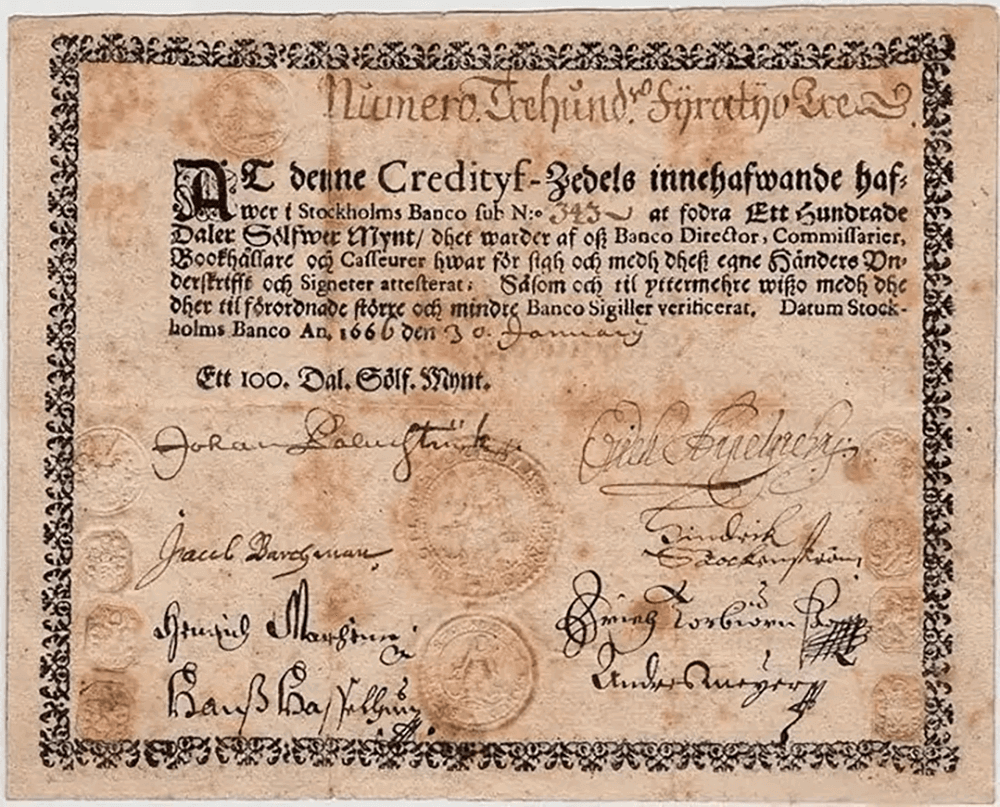 Numero. Trehund.ro Fyratijo Tre
AT denne Credityf-Zedels innehafwande haf-
wer i Stockholms Banco sub N:o 343 at fodra Ett Hundrade
Daler Sölfwer Mynt/ dhet warder af oß Banco Director, Commissarier,
Bookhållare och Casseurer hwar för sigh och medh dheß egne Händers Vn-
derskrifft och Signeter attesterat; Såsom och til yttermehre wißo medh dhe
dher til förordnade större och mindre Banco Sigiller verificerat. Datum Stock-
holms Banco An. 1666 den 30. January
Ett 100. Dal. Sölf. Mynt.
Johan Palmstruch
Jacob Barchman
Hindrik
Stockenström
Henrich
Erich Torbiörn
Hanß
Anders Meyer